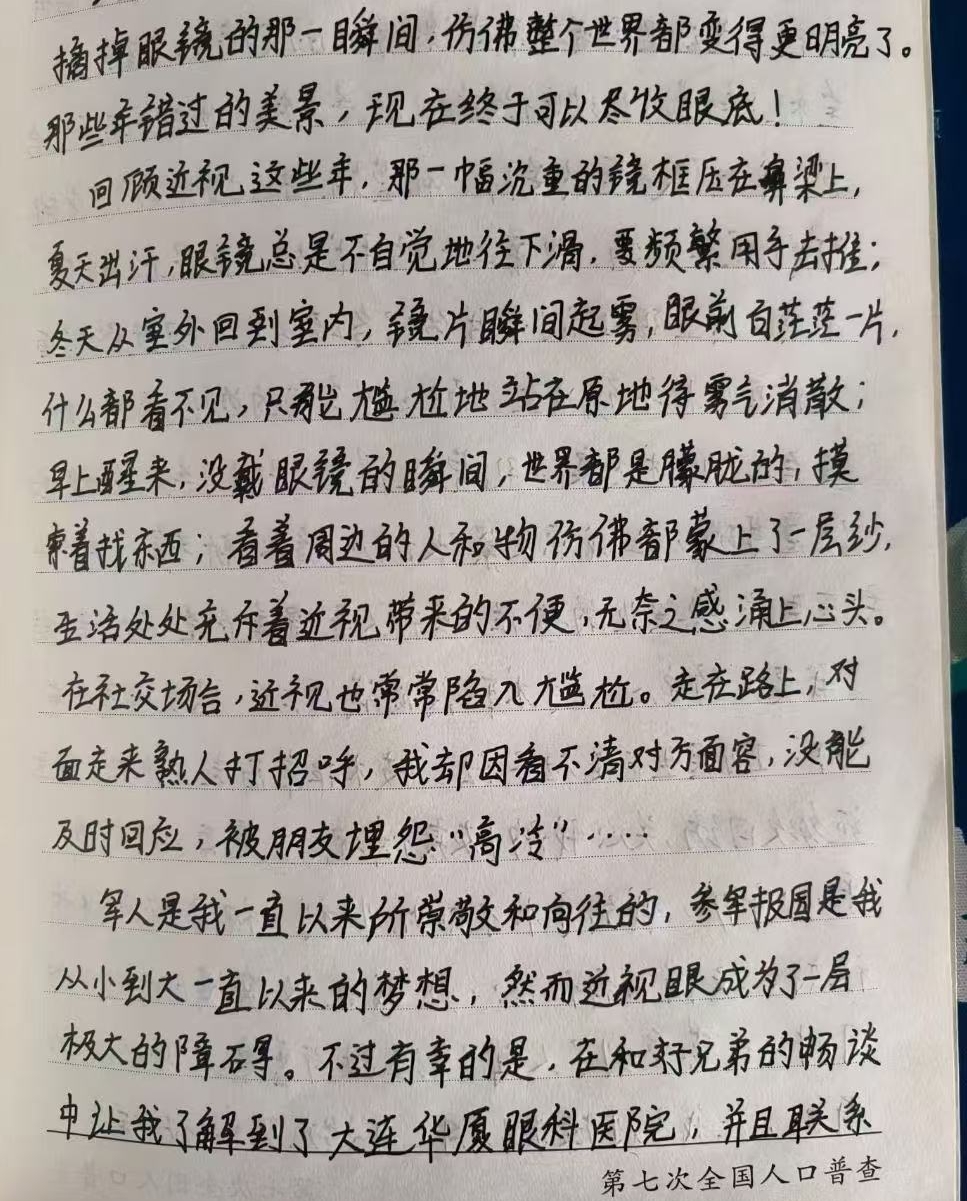 摘掉眼镜的那一瞬间，仿佛整个世界都变得更明亮了。
那些年错过的美景，现在终于可以尽收眼底！
回顾近视这些年，那一幅沉重的镜框压在鼻梁上，
夏天出汗，眼镜总是不自觉地往下滑，要频繁用手去推；
冬天从室外回到室内，镜片瞬间起雾，眼前白茫茫一片，
什么都看不见，只能尴尬地站在原地待雾气消散；
早上醒来，没戴眼镜的瞬间，世界都是朦胧的，摸
索着找东西；看着周边的人和物仿佛都蒙上了一层纱，
生活处处充斥着近视带来的不便，无奈之感涌上心头。
在社交场合，近视也常常陷入尴尬。走在路上，对
面走来熟人打招呼，我却因看不清对方面容，没能
及时回应，被朋友埋怨“高冷”……
军人是我一直以来所崇敬和向往的，参军报国是我
从小到大一直以来的梦想，然而近视眼成为了一层
极大的障碍。不过有幸的是，在和好兄弟的畅谈
中让我了解到了大连华厦眼科医院，并且联系
第七次全国人口普查